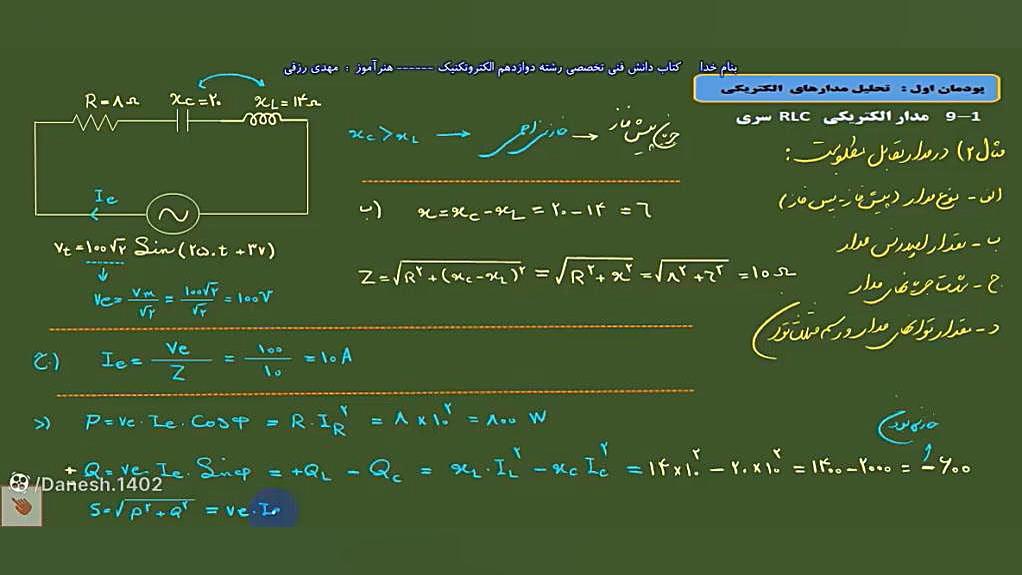 بنام خدا کتاب دانش فنی تخصصی رشته دوازدهم الکتروتکنیک ------ هنرآموز : مهدی رزقی
پودمان اول : تحلیل مدارهای الکتریکی
1-9 مدار الکتریکی RLC سری
مثال ۲) در مدار مقابل مطلوبست :
الف - نوع مدار (پیش فاز - پس فاز)
ب - مقدار امپدانس مدار
ج - شدت جریانهای مدار
د - مقدار توانهای مدار و رسم مثلث توان
R=۸Ω xc=۲۰ xL=۱۴Ω
Ie
Vt=۱۰۰√۲ Sin(۲۵۰t+۳۷)
Ve= Vm/√۲ = ۱۰۰√۲/√۲ =۱۰۰V
xc>xL → خازنی اهمی → جریان پیش فاز
ب) x=xc-xL=۲۰-۱۴=۶
Z=√R²+(xc-xL)² =√R²+x² =√۸²+۶² =۱۰Ω
ج) Ie= Ve/Z = ۱۰۰/۱۰ =۱۰A
د) P=Ve.Ie.Cosφ = R.IR² = ۸×۱۰² =۸۰۰ W
خازنی بودن
+Q=Ve.Ie.Sinφ =+QL - Qc = xL.IL² - xc Ic² =۱۴×۱۰² -۲۰×۱۰² =۱۴۰۰-۲۰۰۰ = -۶۰۰
/Danesh.1402
S=√P²+Q² = Ve.Ie